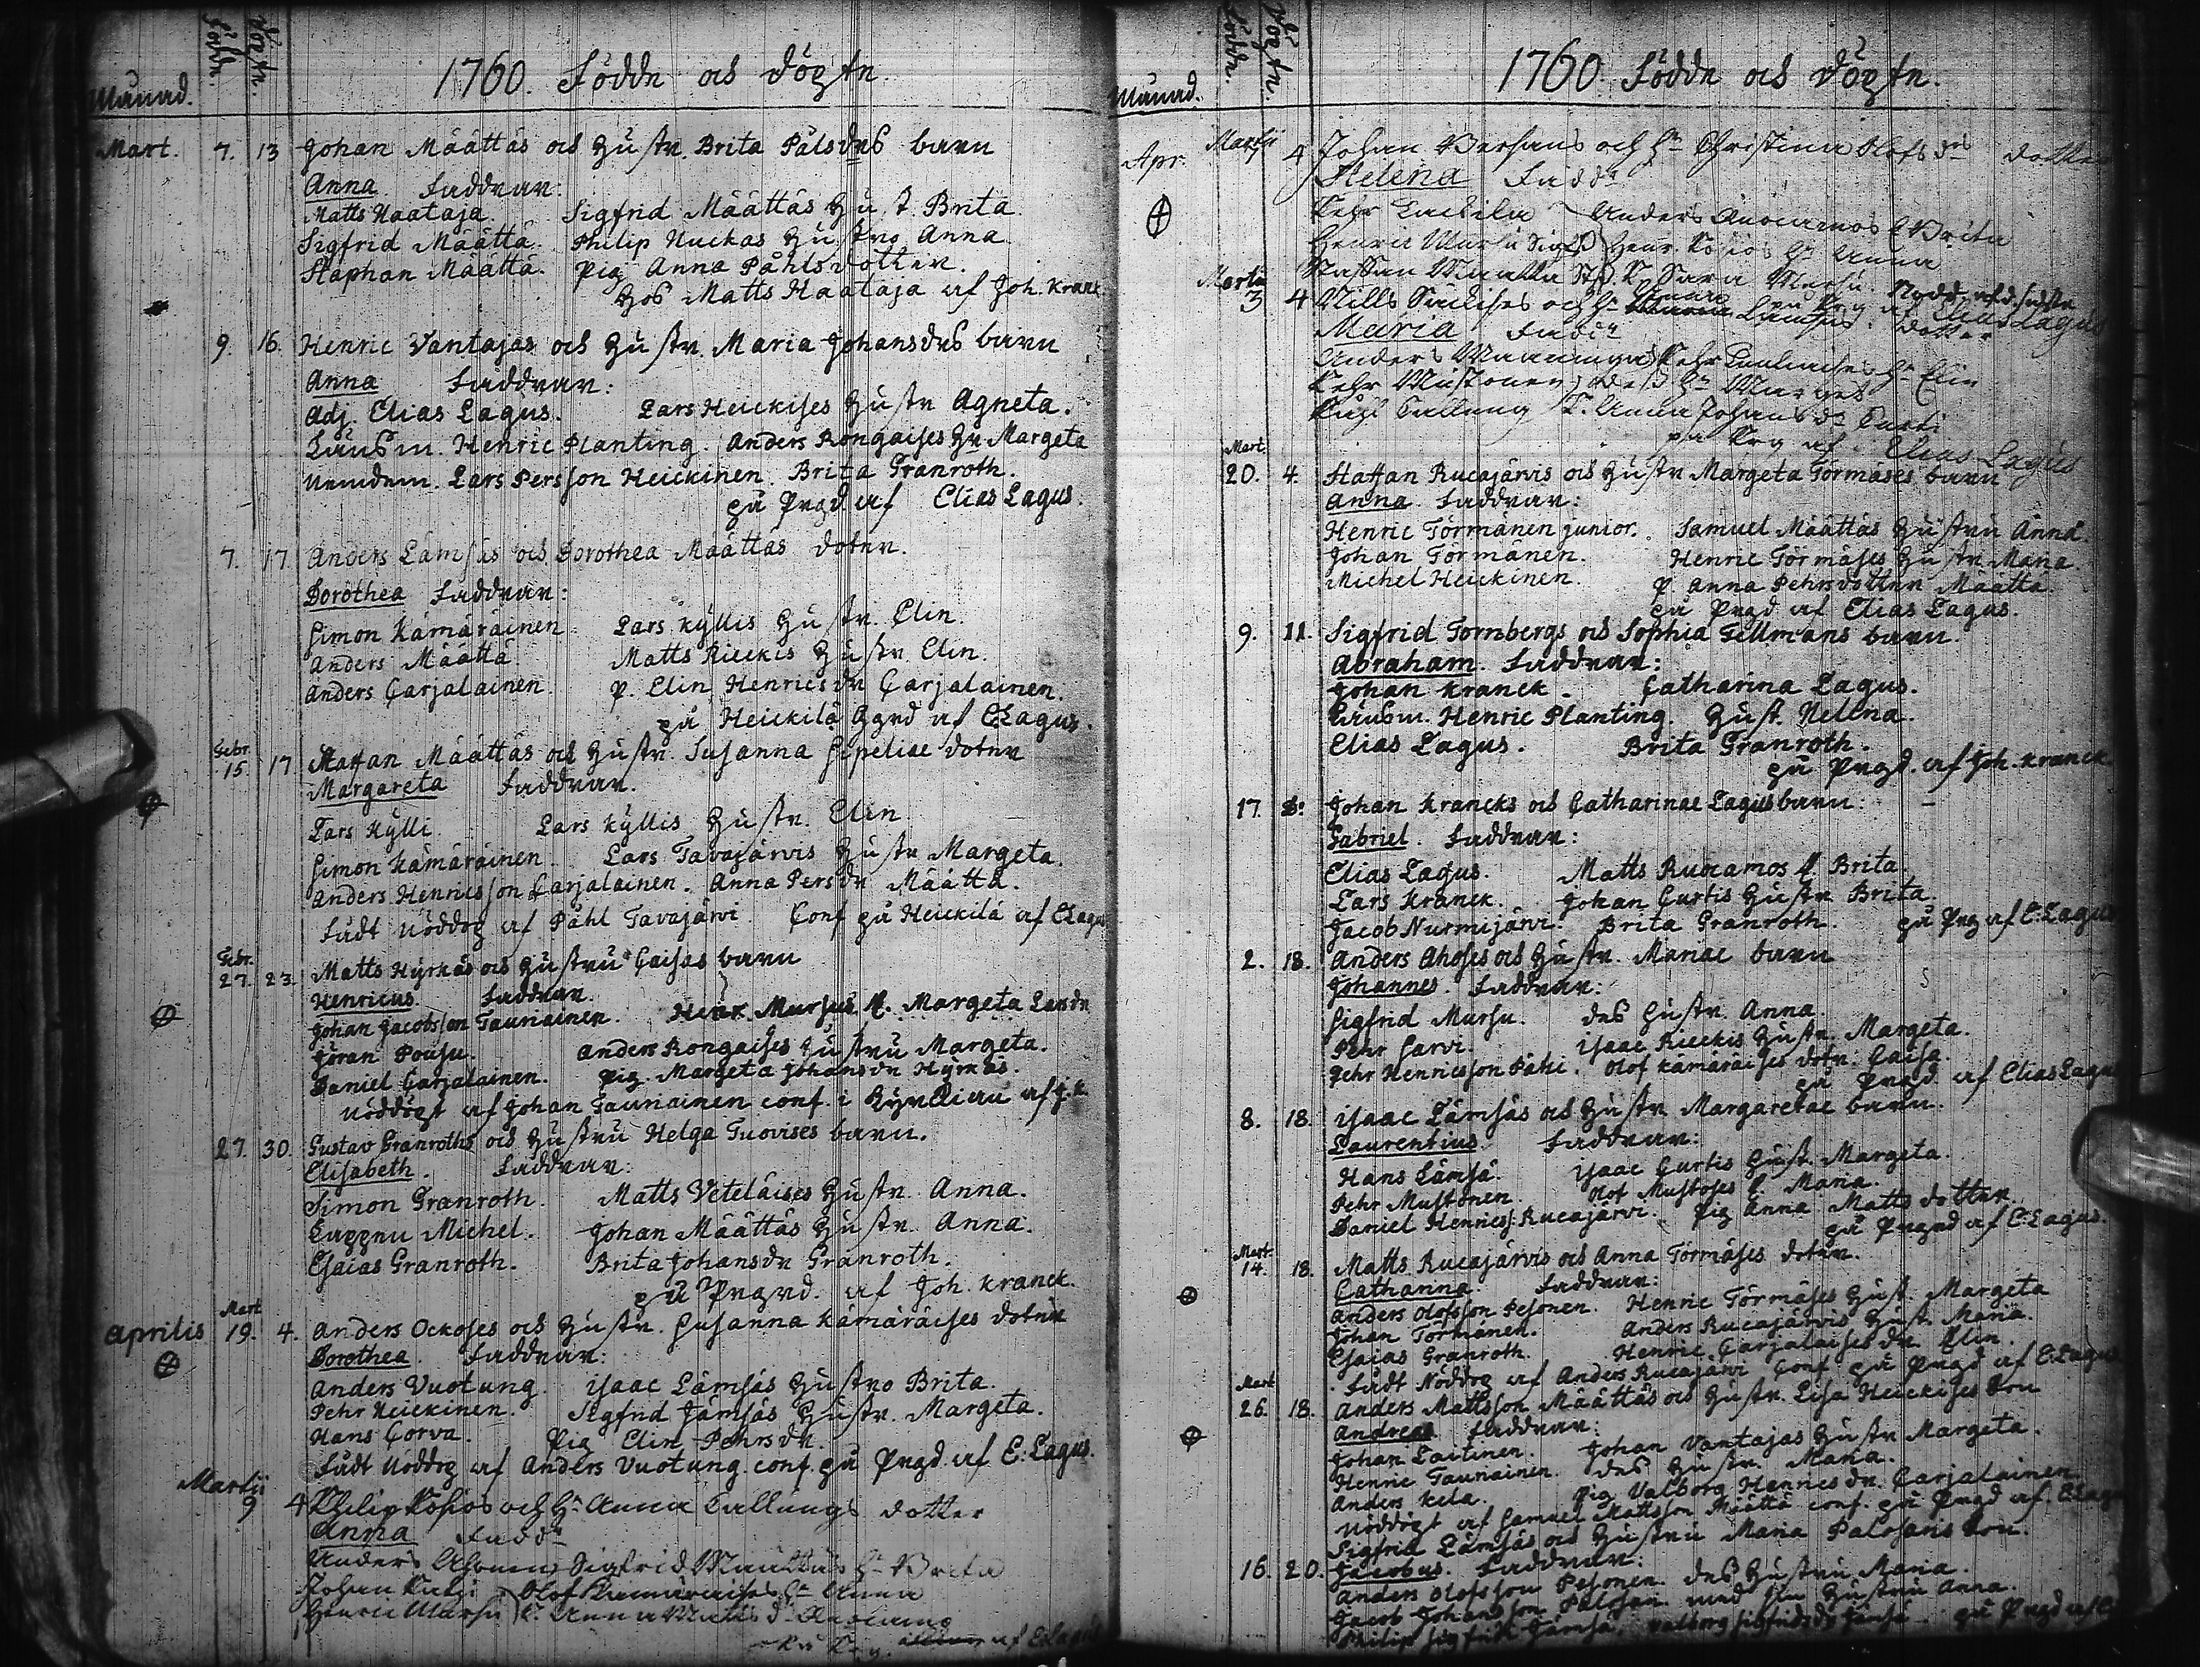 1760. Födde och döpte.
Månad. Födde. Döpte.
Mart. 7. 13 Johan Määttäs och Hustr. Brita Pålsdrs barn
Anna. Faddrar:
Matts Haataja. Sigfrid Määttäs Hust. Brita
Sigfrid Määttä. Philip Huckas Hustro Anna
Staphan Määttä. Pig Anna Påhlsdotter.
Hos Matts Haataja af Joh. Kranck
9. 16. Henric Vantajas och Hustr. Maria Johansdrs barn
Anna Faddrar:
Adj. Elias Lagus. Lars Heickises Hustr Agneta.
Länsm. Henric Planting. Anders Rongaises Hr Margeta
Nemdem. Lars Persson Heickinen. Brita Granroth.
på Prgd af Elias Lagus.
7. 17. Anders Lämsäs och Dorothea Määttäs doter.
Dorothea Faddrar:
Simon Kämäräinen Lars Kyllis Hustr. Elin.
Anders Määttä. Matts Rieckis Hustr. Elin.
Anders Carjalainen. p. Elin Henricsdr Carjalainen.
på Heickilä Ggrd af E Lagus.
Febr. 15. 17 Staffan Määttäs och Hustr. Susanna Sipeliae doter
Margareta Faddrar.
Lars Kylli. Lars Kyllis Hustr. Elin
Simon Kämäräinen. Lars Tavajärvis Hustr Margeta.
Anders Henricsson Carjalainen. Anna Persdr Määttä.
Fådt Nöddop af Påhl Tavajärvi. Conf på Heickilä af E Lagus
Febr. 27. 23. Matts Hyrkäs och Hustru Caisas barn
Henricus. Faddrar.
Johan Jacobsson Tauriainen. Henr. Mursus H. Margeta Larsdr
Jöran Pousu. Anders Rongaises Hustru Margeta.
Daniel Carjalainen. Pig. Margeta Johansdr Hyrkäs.
Nöddöpt af Johan Tauriainen conf. i Kyrckian af J.K.
27. 30. Gustav Granroths och Hustru Helga Tuovises barn.
Elisabeth. Faddrar:
Simon Granroth. Matts Veteläises Hustr. Anna.
Michel. Johan Määttäs Hustr. Anna.
Esaias Granroth. Brita Johansdr Granroth.
på Prgrd. af Joh. Kranck.
Aprilis Mart 19. 4. Anders Ockoses och Hustr. Susanna Kämäräises doter
Dorothea. Faddrar:
Anders Vuotung. Isaac Lämsäs Hustro Brita.
Pehr Heickinen. Sigfrid Jämsäs Hustr. Margeta.
Hans Corva. Pig Elin Pehrsdr.
Fådt Nöddop af Anders Vuotung. conf. på Prgd. af E. Lagus.
Martii 9 4 Philip Kosios och Hr Anna Callungs dotter
Anna Fadd:
Anders Ahonen Sigfrid Määttäs Hr Brita
Johan Olof Kämäräises Hr Anna
Henric Mursu Anna Matts dr
af E Lagus
1760. Födde och döpte.
Månad. Födde. Döpte.
Apr. Martii 7 4 Johan och Hr Christina Olofs drs dotter
Helena Fadd:
Pehr Anders Brita
Henric Mursu Henr. Kosios Hr Anna
Staffan Määttä Sara Mursu. af Elias Lagus
Martii 3 4 Nills och Hr dotter
Maria Fadd:
Anders Pehr Hr Elin
Pehr Mustonen Hr Marget
Anna Johans dr
på Prg af Elias Lagus
Mart 20. 4. Staffan Rucajärvis och Hustr Margeta Törmäses barn
Anna. Faddrar:
Henric Törmänen junior. Samuel Määttäs Hustru Anna.
Johan Törmänen. Henric Törmäses Hustr. Maria.
Michel Heickinen. p. Anna Pehrsdotter Määttä.
på Prgd af Elias Lagus.
9. 11. Sigfrid Tornbergs och Sophia Fellmans barn.
Abraham. Faddrar:
Johan Kranck. Catharina Lagus.
Länsm. Henric Planting. Hust. Helena.
Elias Lagus. Brita Granroth.
på Prgd. af Joh. Kranck.
17. Johan Krancks och Catharinae Lagus barn.
Gabriel. Faddrar:
Elias Lagus. Matts Ruocamos H. Brita
Lars Kranck. Johan Curtis Hustr Brita.
Jacob Nurmijärvi. Brita Granroth. på Prg af E. Lagus
2. 18. Anders Ahoses och Hustr. Mariae barn
Johannes. Faddrar:
Sigfrid Mursu. des Hustr. Anna.
Pehr Sarvi. Isaac Rieckis Hustr. Margeta.
Pehr Henricsson Pätsi. Olof Kämäräises doter. Caisa.
på Prgd. af Elias Lagus
8. 18. Isaac Lämsäs och Hustr. Margaretae barn.
Laurentius. Faddrar:
Hans Lämsä. Isaac Curtis Hust. Margeta.
Pehr Mustonen. Olof Mustoses H. Maria.
Daniel Henricss. Rucajärvi. Pig Anna Matts dotter.
på Prgrd af E. Lagus.
Mart. 14. 18. Matts Rucajärvis och Anna Törmäses doter.
Catharina. Faddrar:
Anders Olofsson Pesonen. Henric Törmäses Hust. Margeta
Johan Törmänen. Anders Rucajärvis Hust. Maria.
Esaias Granroth. Henric Carjalaises dr Elin.
Fådt Nöddop af Anders Rucajärvi Conf. på Prgd af E. Lagus.
Mart 26. 18. Anders Mattsson Määttäs och Hustr. Lisa Heickises son
Andreas Faddrar:
Johan Laitinen. Johan Vantajas Hustr Margeta.
Henric Taunainen. des Hustr. Maria.
Anders Kela. Pig Valborg Henricsdr. Carjalainen
Nöddöpt af Samuel Mattsson Määttä conf. på Prgd af. E Lagus
16. 20. Sigfrid Lämsäs och Hustru Maria Palosaris son.
Jacobus. Faddrar:
Anders Olofsson Pesonen. des Hustru Maria.
Jacob Johansson Palosari med sin Hustru Anna.
Philip Sigfrids Jämsä. Valborg Sigfridsdr Jämsä. på Prgd af E